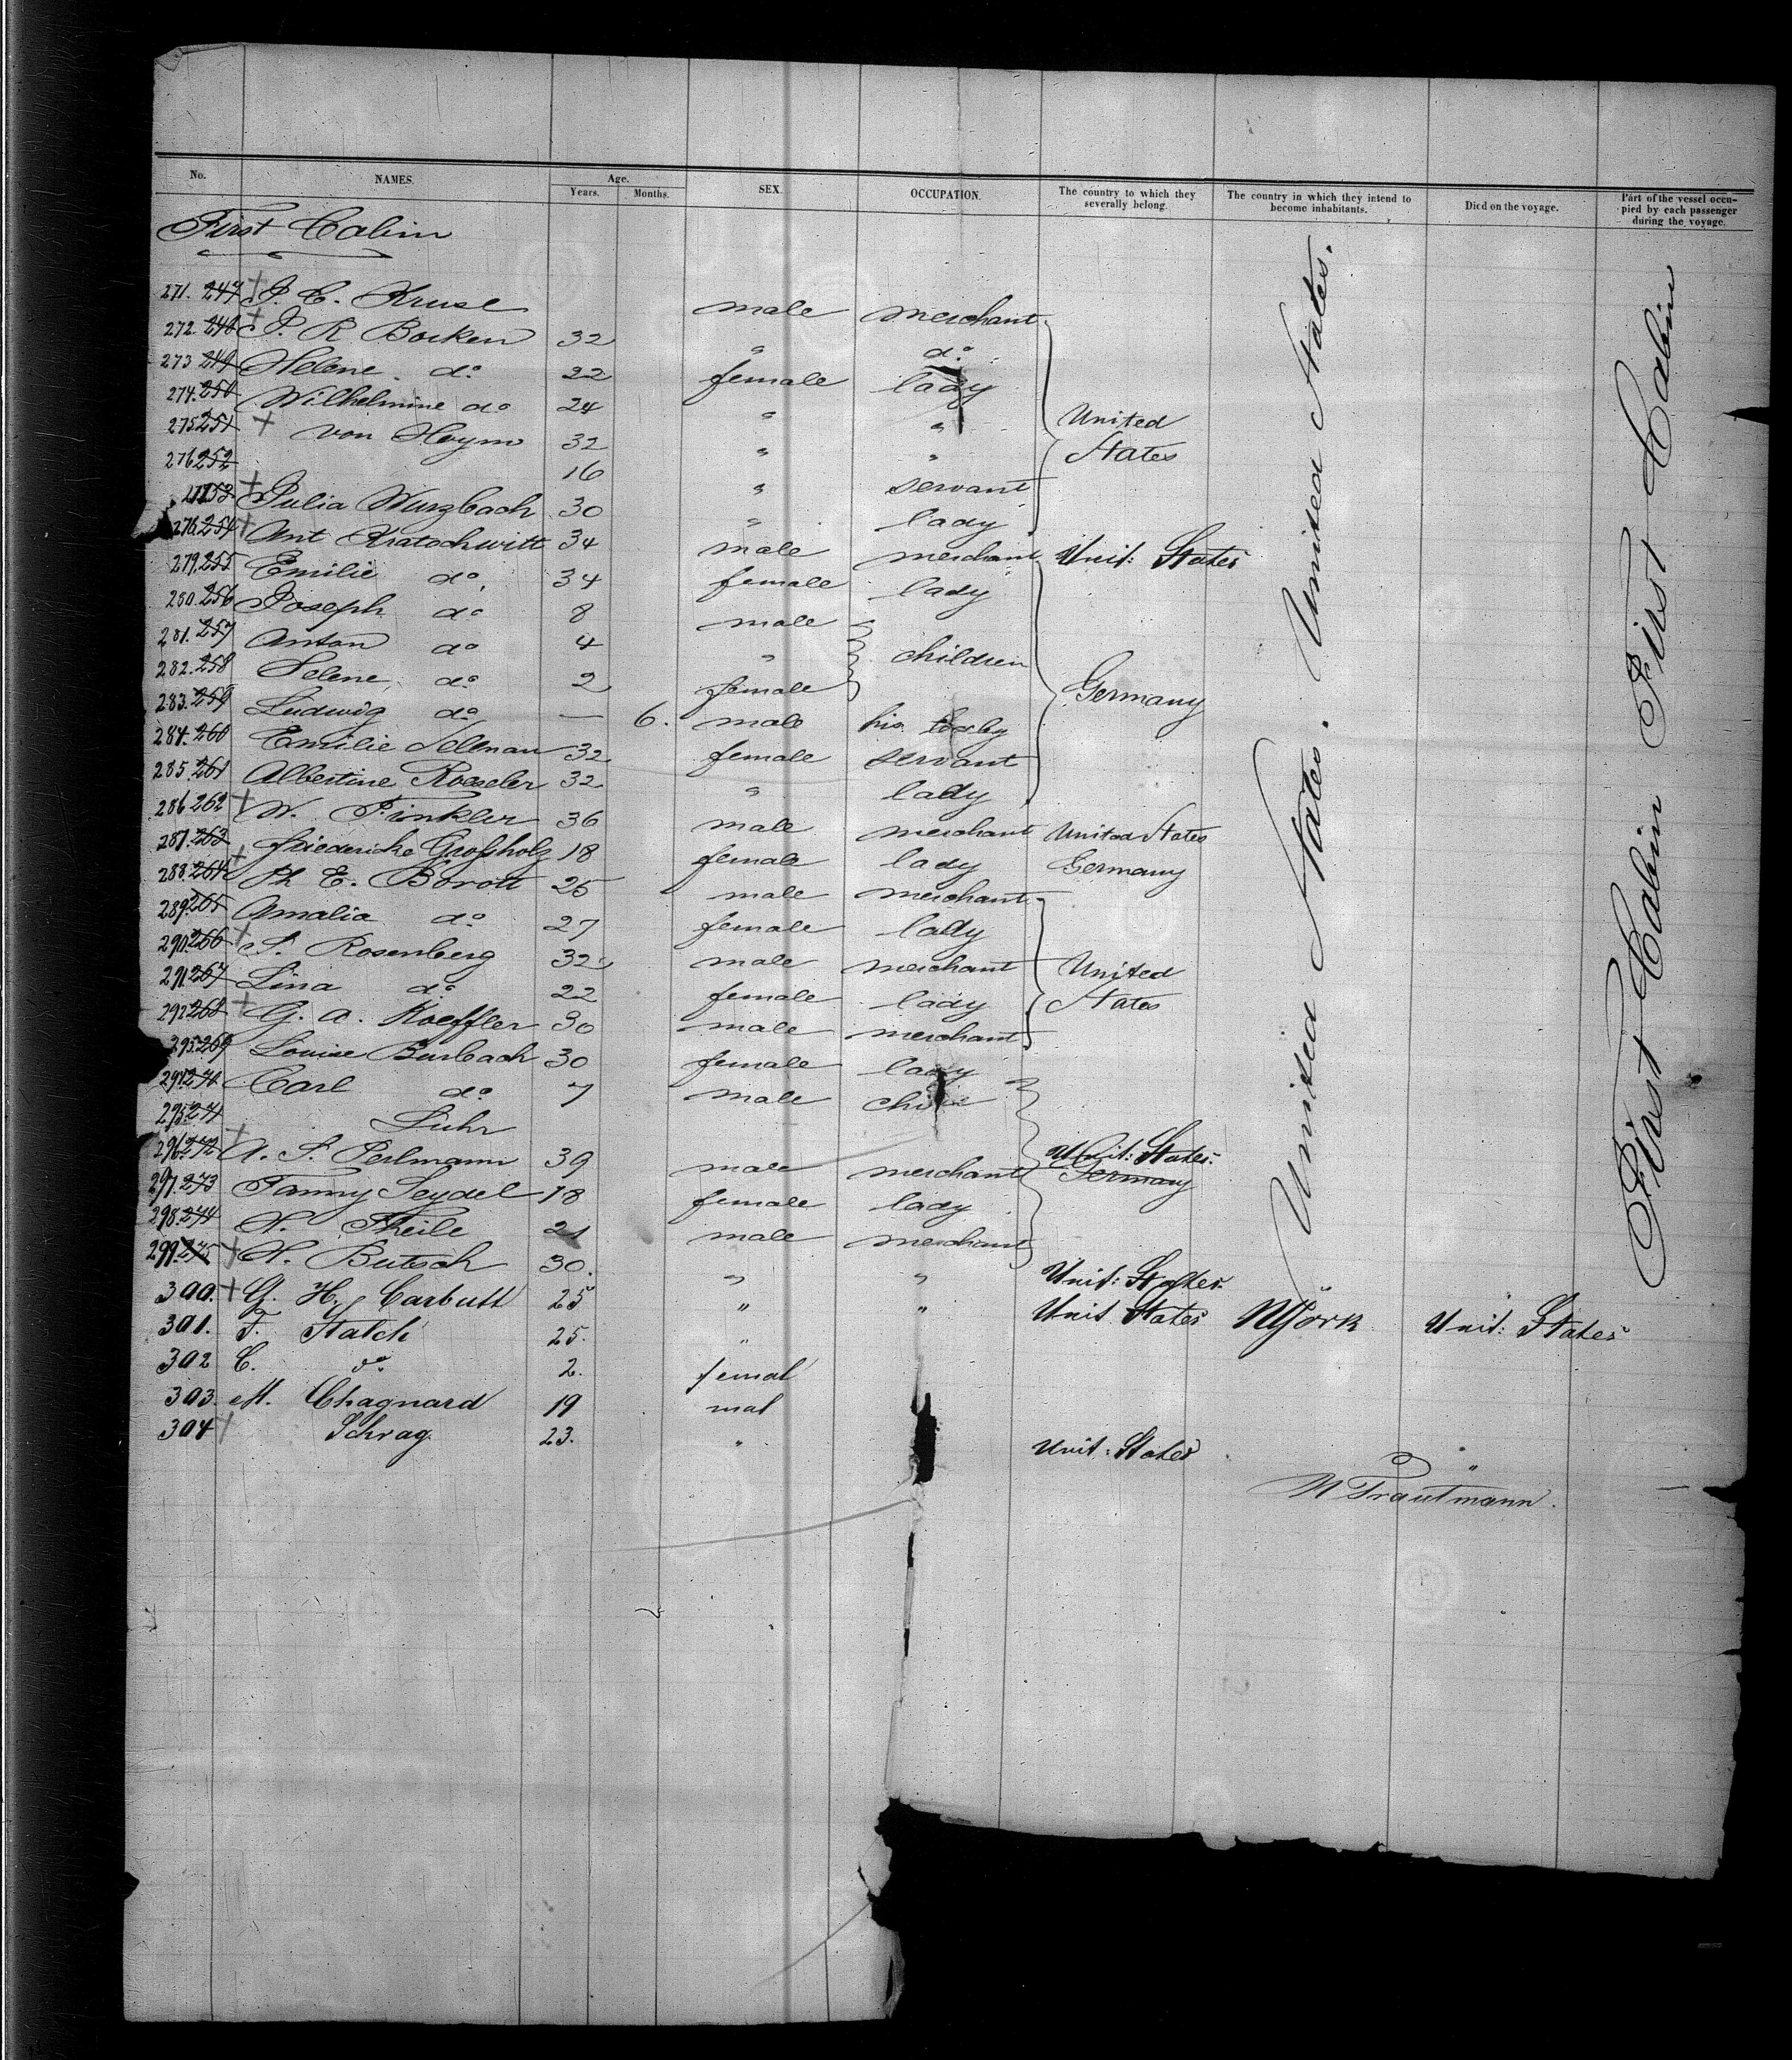 No. NAMES. Age. Years. Months. SEX. OCCUPATION. The country to which they severally belong. The country in which they intend to become inhabitants. Died on the voyage. Part of the vessel occupied by each passenger during the voyage.
First Cabin
271. 247 + J. C. Kruse male merchant
272. 248 + J. R Bocken 32 " do
273 249 Helene do 22 female lady
274. 250 Wilhelmine do 24 " "
275 251 + von Heym 32 " "
276 252 16 " servant
253 + Julia Wurzbach 30 " lady
United States
254 + Ant Kratochwill 34 male merchant Unit: States
279. 255 Emilie do 34 female lady
280. 256 Joseph do 8 male
281. 257 Anton do 4 " children
282. 258 Selene do 2 female
283. 259 Ludwig do — 6. male his
284. 260 Emilie Sellnau 32 female servant
285. 261 Albertine Roeseler 32 " lady
Germany
286 262 + W. Finkler 36 male merchant United States
287. 263 Friedericke Großholz 18 female lady Germany
288. 264 + Ph E. Borott 25 male merchant
289. 265 Amalia do 27 female lady
290. 266 + S. Rosenberg 32 male merchant
291 267 Lina do 22 female lady
292 268 + G. A. Koeffler 30 male merchant
United States
269 Louise Burbach 30 female lady
294. 270 Carl do 7 male child
295. 271 Luhr
296. 272 + A. S. Perlmann 39 male merchant Unit: States. Germany
297. 273 Fanny Seydel 18 female lady
298. 274 N. Theile 21 male merchant
299. 275 + N. Butsch 30. " " Unit: States.
300. + G. H. Carbutt 25 " " Unit States NYork Unit: States
301. F. Stalch 25. "
302 C. do 2. femal
303. M. Chagnard 19 mal
304 + Schrag 23. " Unit: States "
M Trautmann.
United States. United States.
First Cabin First Cabin